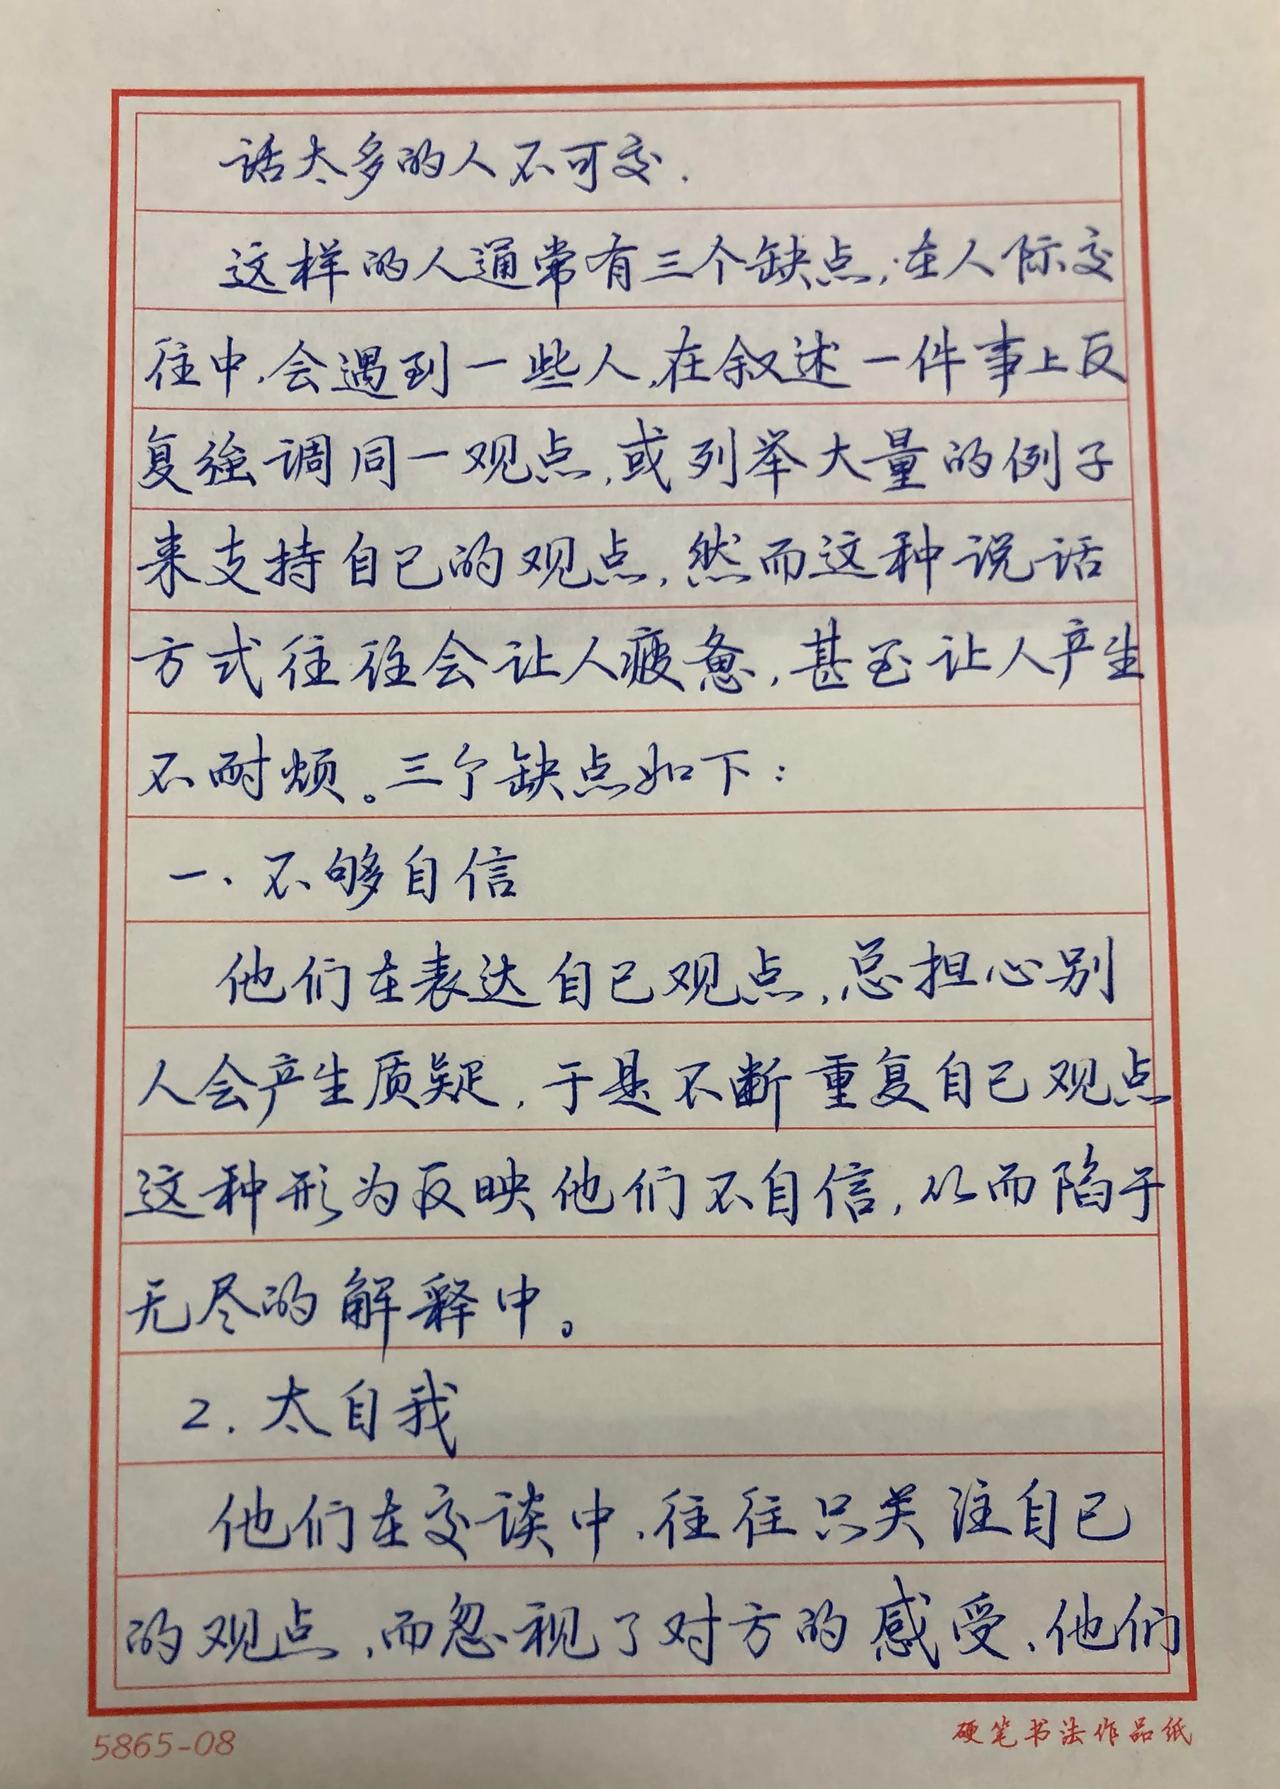 话太多的人不可交.
这样的人通常有三个缺点,在人际交
往中,会遇到一些人,在叙述一件事上反
复强调同一观点,或列举大量的例子
来支持自己的观点,然而这种说话
方式往往会让人疲惫,甚至让人产生
不耐烦。三个缺点如下:
一、不够自信
他们在表达自己观点,总担心别
人会产生质疑,于是不断重复自己观点
这种形为反映他们不自信,从而陷于
无尽的解释中。
2.太自我
他们在交谈中,往往只关注自己
的观点,而忽视了对方的感受,他们
5865-08
硬笔书法作品纸